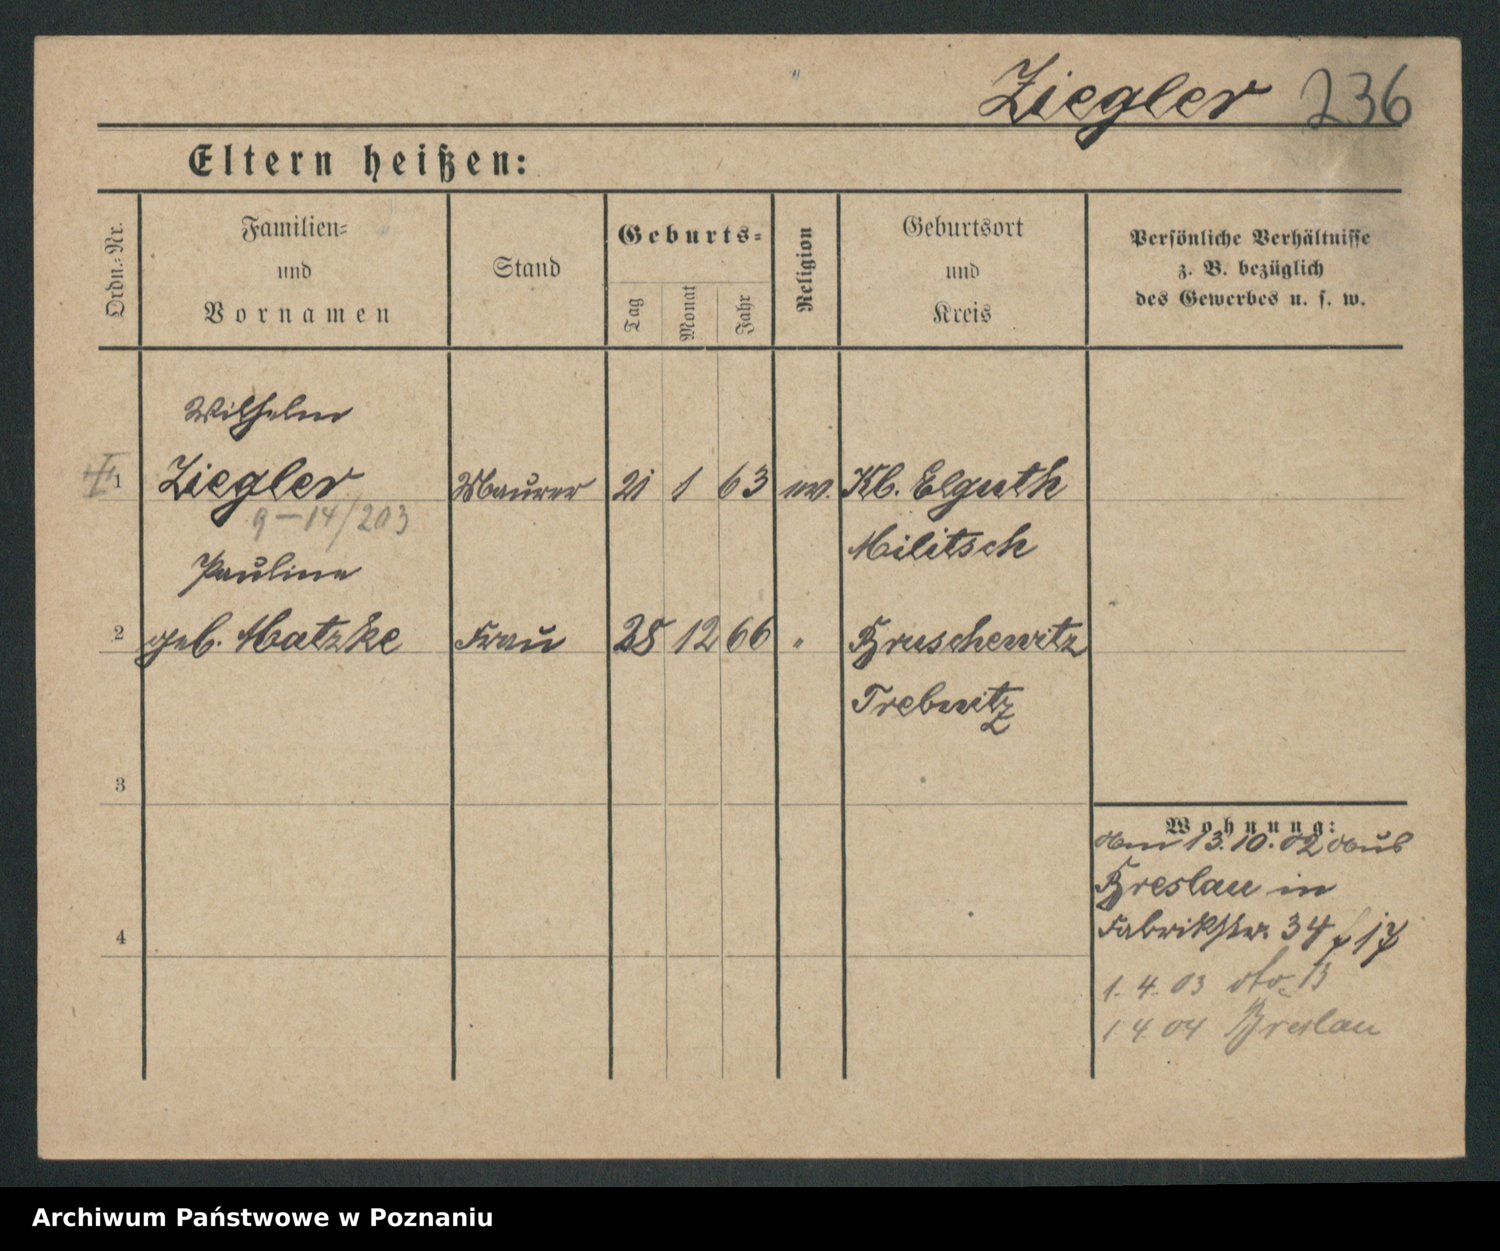 Ziegler 236
Eltern heißen:
Ordn.-Nr.
Familien-
und
Vornamen
Stand
Geburts-
Tag
Monat
Jahr
Religion
Geburtsort
und
Kreis
Persönliche Verhältnisse
z. B. bezüglich
des Gewerbes u. s. w.
Wilhelm
1 Ziegler Maurer 21 1 63 ev. Kl. Elguth
9-14/203
Militsch
Pauline
2 geb. Matzke Frau 28 12 66 " Bruschewitz
Trebnitz
3
Wohnung:
13.10.02 aus
Breslau in
Fabrikstr. 34
4
1.4.03
1 4 04 Breslau
Archiwum Państwowe w Poznaniu